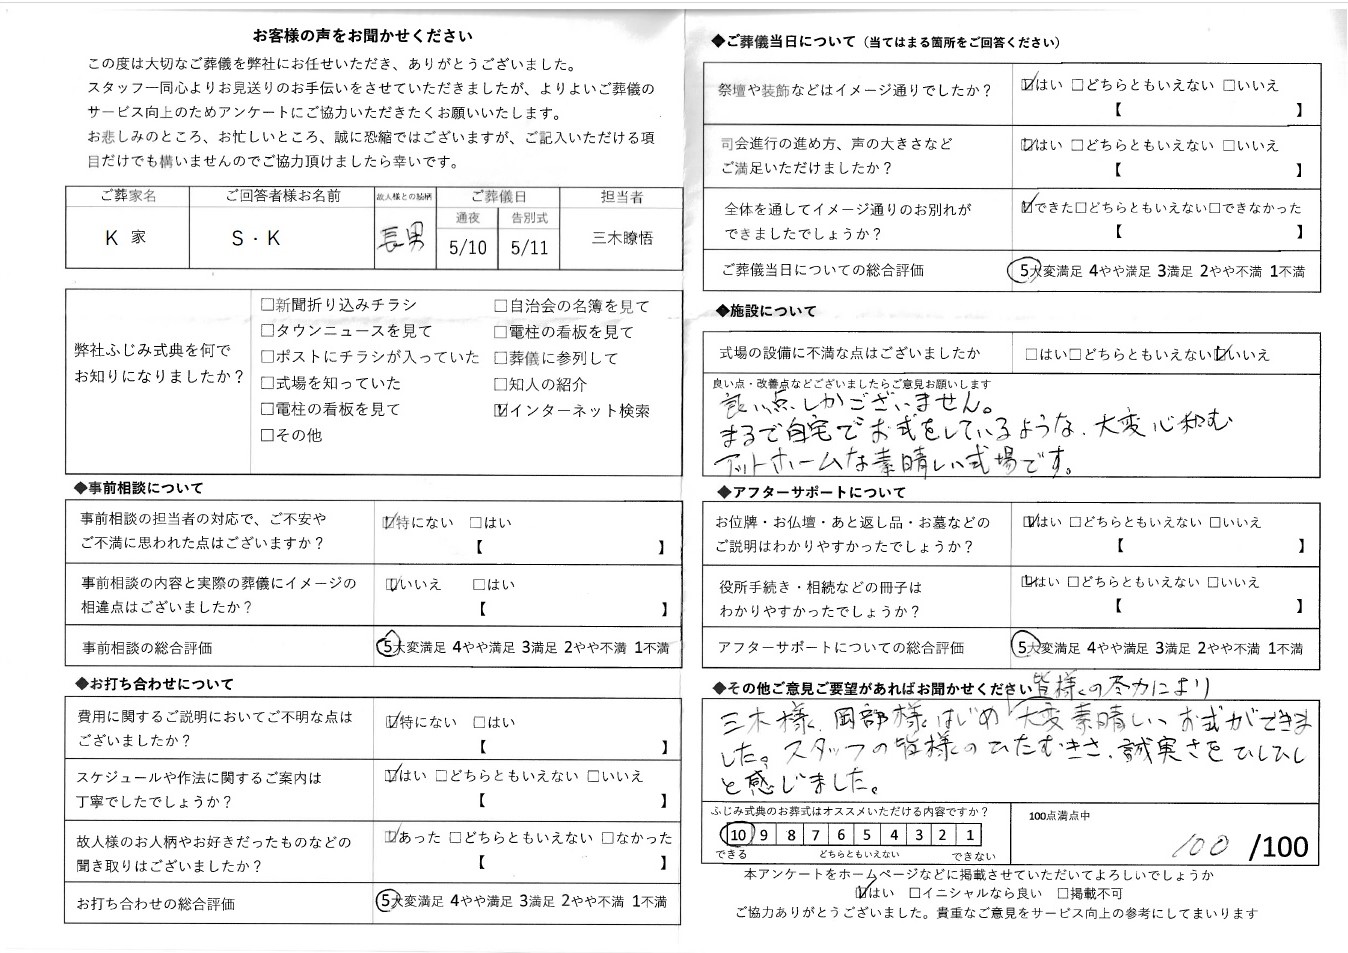 お客様の声をお聞かせください
この度は大切なご葬儀を弊社にお任せいただき、ありがとうございました。
スタッフ一同心よりお見送りのお手伝いをさせていただきましたが、よりよいご葬儀の
サービス向上のためアンケートにご協力いただきたくお願いいたします。
お悲しみのところ、お忙しいところ、誠に恐縮ではございますが、ご記入いただける項
目だけでも構いませんのでご協力頂けましたら幸いです。
ご葬家名 ご回答者様お名前 故人様との続柄 ご葬儀日 担当者
通夜 告別式
K 家 S・K 長男 5/10 5/11 三木瞭悟
弊社ふじみ式典を何で
お知りになりましたか？
□新聞折り込みチラシ □自治会の名簿を見て
□タウンニュースを見て □電柱の看板を見て
□ポストにチラシが入っていた □葬儀に参列して
□式場を知っていた □知人の紹介
□電柱の看板を見て ☑インターネット検索
□その他
◆事前相談について
事前相談の担当者の対応で、ご不安や
ご不満に思われた点はございますか？
☑特にない □はい
【 】
事前相談の内容と実際の葬儀にイメージの
相違点はございましたか？
☑いいえ □はい
【 】
事前相談の総合評価 5大変満足 4やや満足 3満足 2やや不満 1不満
◆お打ち合わせについて
費用に関するご説明においてご不明な点は
ございましたか？
☑特にない □はい
【 】
スケジュールや作法に関するご案内は
丁寧でしたでしょうか？
☑はい □どちらともいえない □いいえ
【 】
故人様のお人柄やお好きだったものなどの
聞き取りはございましたか？
☑あった □どちらともいえない □なかった
【 】
お打ち合わせの総合評価 5大変満足 4やや満足 3満足 2やや不満 1不満
◆ご葬儀当日について（当てはまる箇所をご回答ください）
祭壇や装飾などはイメージ通りでしたか？ ☑はい □どちらともいえない □いいえ
【 】
司会進行の進め方、声の大きさなど
ご満足いただけましたか？
☑はい □どちらともいえない □いいえ
【 】
全体を通してイメージ通りのお別れが
できましたでしょうか？
☑できた□どちらともいえない□できなかった
【 】
ご葬儀当日についての総合評価 5大変満足 4やや満足 3満足 2やや不満 1不満
◆施設について
式場の設備に不満な点はございましたか □はい□どちらともいえない☑いいえ
良い点・改善点などございましたらご意見お願いします
良い点しかございません。
まるで自宅でお式をしているような、大変心和む
アットホームな素晴しい式場です。
◆アフターサポートについて
お位牌・お仏壇・あと返し品・お墓などの
ご説明はわかりやすかったでしょうか？
☑はい □どちらともいえない □いいえ
【 】
役所手続き・相続などの冊子は
わかりやすかったでしょうか？
☑はい □どちらともいえない □いいえ
【 】
アフターサポートについての総合評価 5大変満足 4やや満足 3満足 2やや不満 1不満
◆その他ご意見ご要望があればお聞かせください
皆様の尽力により
三木様、岡部様はじめ 大変素晴しいお式ができま
した。スタッフの皆様のひたむきさ、誠実さをひしひし
と感じました。
ふじみ式典のお葬式はオススメいただける内容ですか？
10 9 8 7 6 5 4 3 2 1
できる どちらともいえない できない
100点満点中
100 /100
本アンケートをホームページなどに掲載させていただいてよろしいでしょうか
☑はい □イニシャルなら良い □掲載不可
ご協力ありがとうございました。貴重なご意見をサービス向上の参考にしてまいります